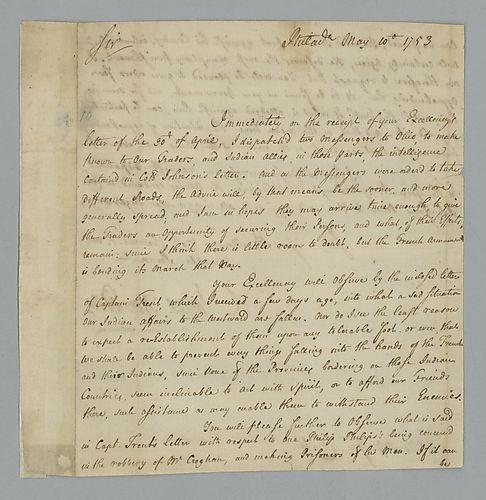 Sir
Philada. May 10th 1753
Immediately on the receipt of your Excellency's
letter of the 30th of April, I dispatch'd two Messengers to Ohio to make
known to Our Traders, and Indian Allies, in those parts, the intelligence
contain'd in Coll Johnson's letter. And as the Messengers were order'd to take
different Roads, the Advice will, by that means, be the sooner, and more
generally spread, and I am in hopes they may arrive time enough to give
the Traders an Opportunity of securing their Persons, and what, of their Effects,
remain; since I think there is little room to doubt, but the French Armament
is bending its March that Way.
Your Excellency will Observe by the inclosed letter
of Captain Trent which I received a few days ago, into what a sad situation
Our Indian affairs to the Westward are fallen. Nor do I see the least reason
to expect a re-Establishment of them upon any tolerable foot, or even that
we shall be able to prevent every thing falling into the hands of the French
and their Indians, since none of the Provinces bordering on those Indian
Countries, seem inclinable to act with Spirit, or to afford our Friends
there, such assistance as may enable them to withstand their Enemies.
You will please further to Observe what is said
in Capt Trents Letter with respect to one Philip Philips's being concern'd
in the robbery of Mr Croghan, and making Prisoners of his Men. If it can
be